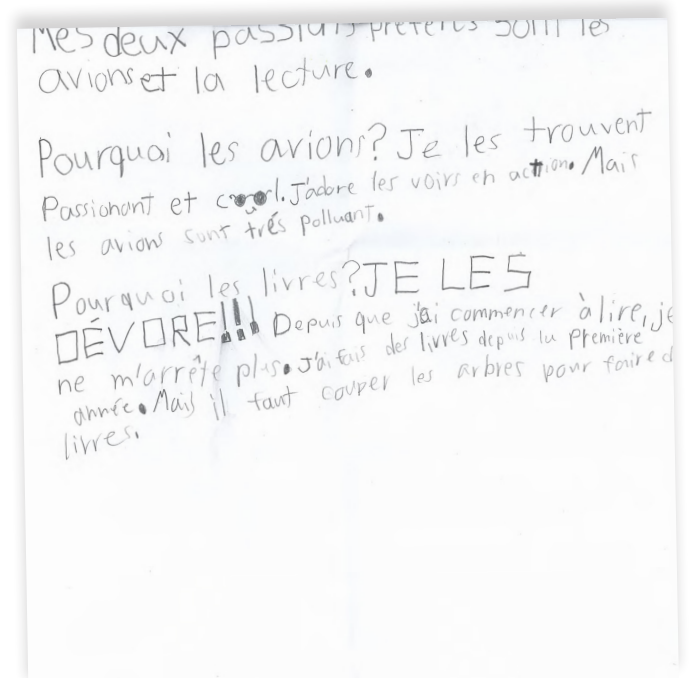 Mes deux passions préférés sont les
avions et la lecture.
Pourquoi les avions? Je les trouvent
Passionant et cool. J'adore les voirs en action. Mais
les avions sont très polluant.
Pourquoi les livres? JE LES
DÉVORE!!! Depuis que j'ai commencer à lire, je
ne m'arrête plus. J'ai fais des livres depuis la Première
année. Mais il faut couper les arbres pour faire d
livres.